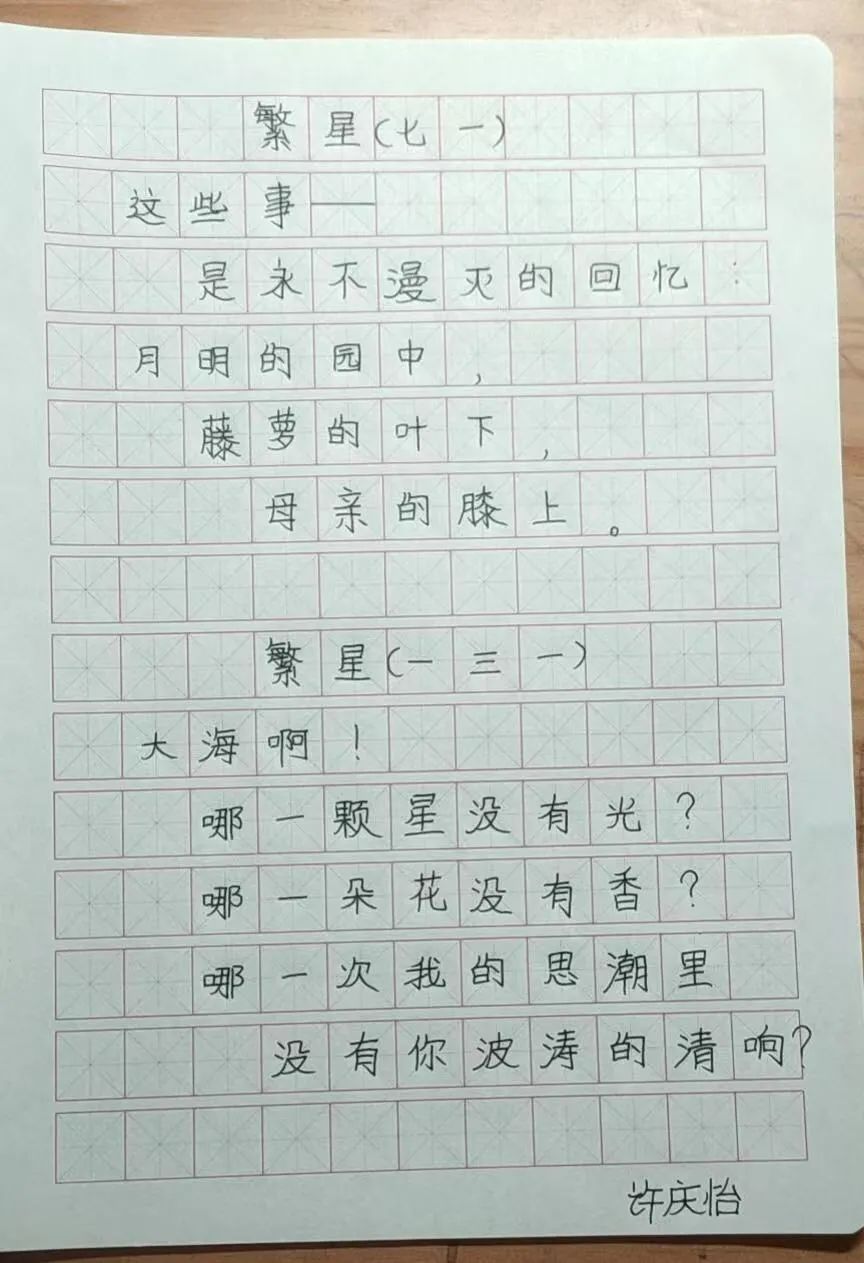 繁星(七一)
这些事——
是永不漫灭的回忆:
月明的园中,
藤萝的叶下,
母亲的膝上。
繁星(一三一)
大海啊!
哪一颗星没有光?
哪一朵花没有香?
哪一次我的思潮里
没有你波涛的清响?
许庆怡